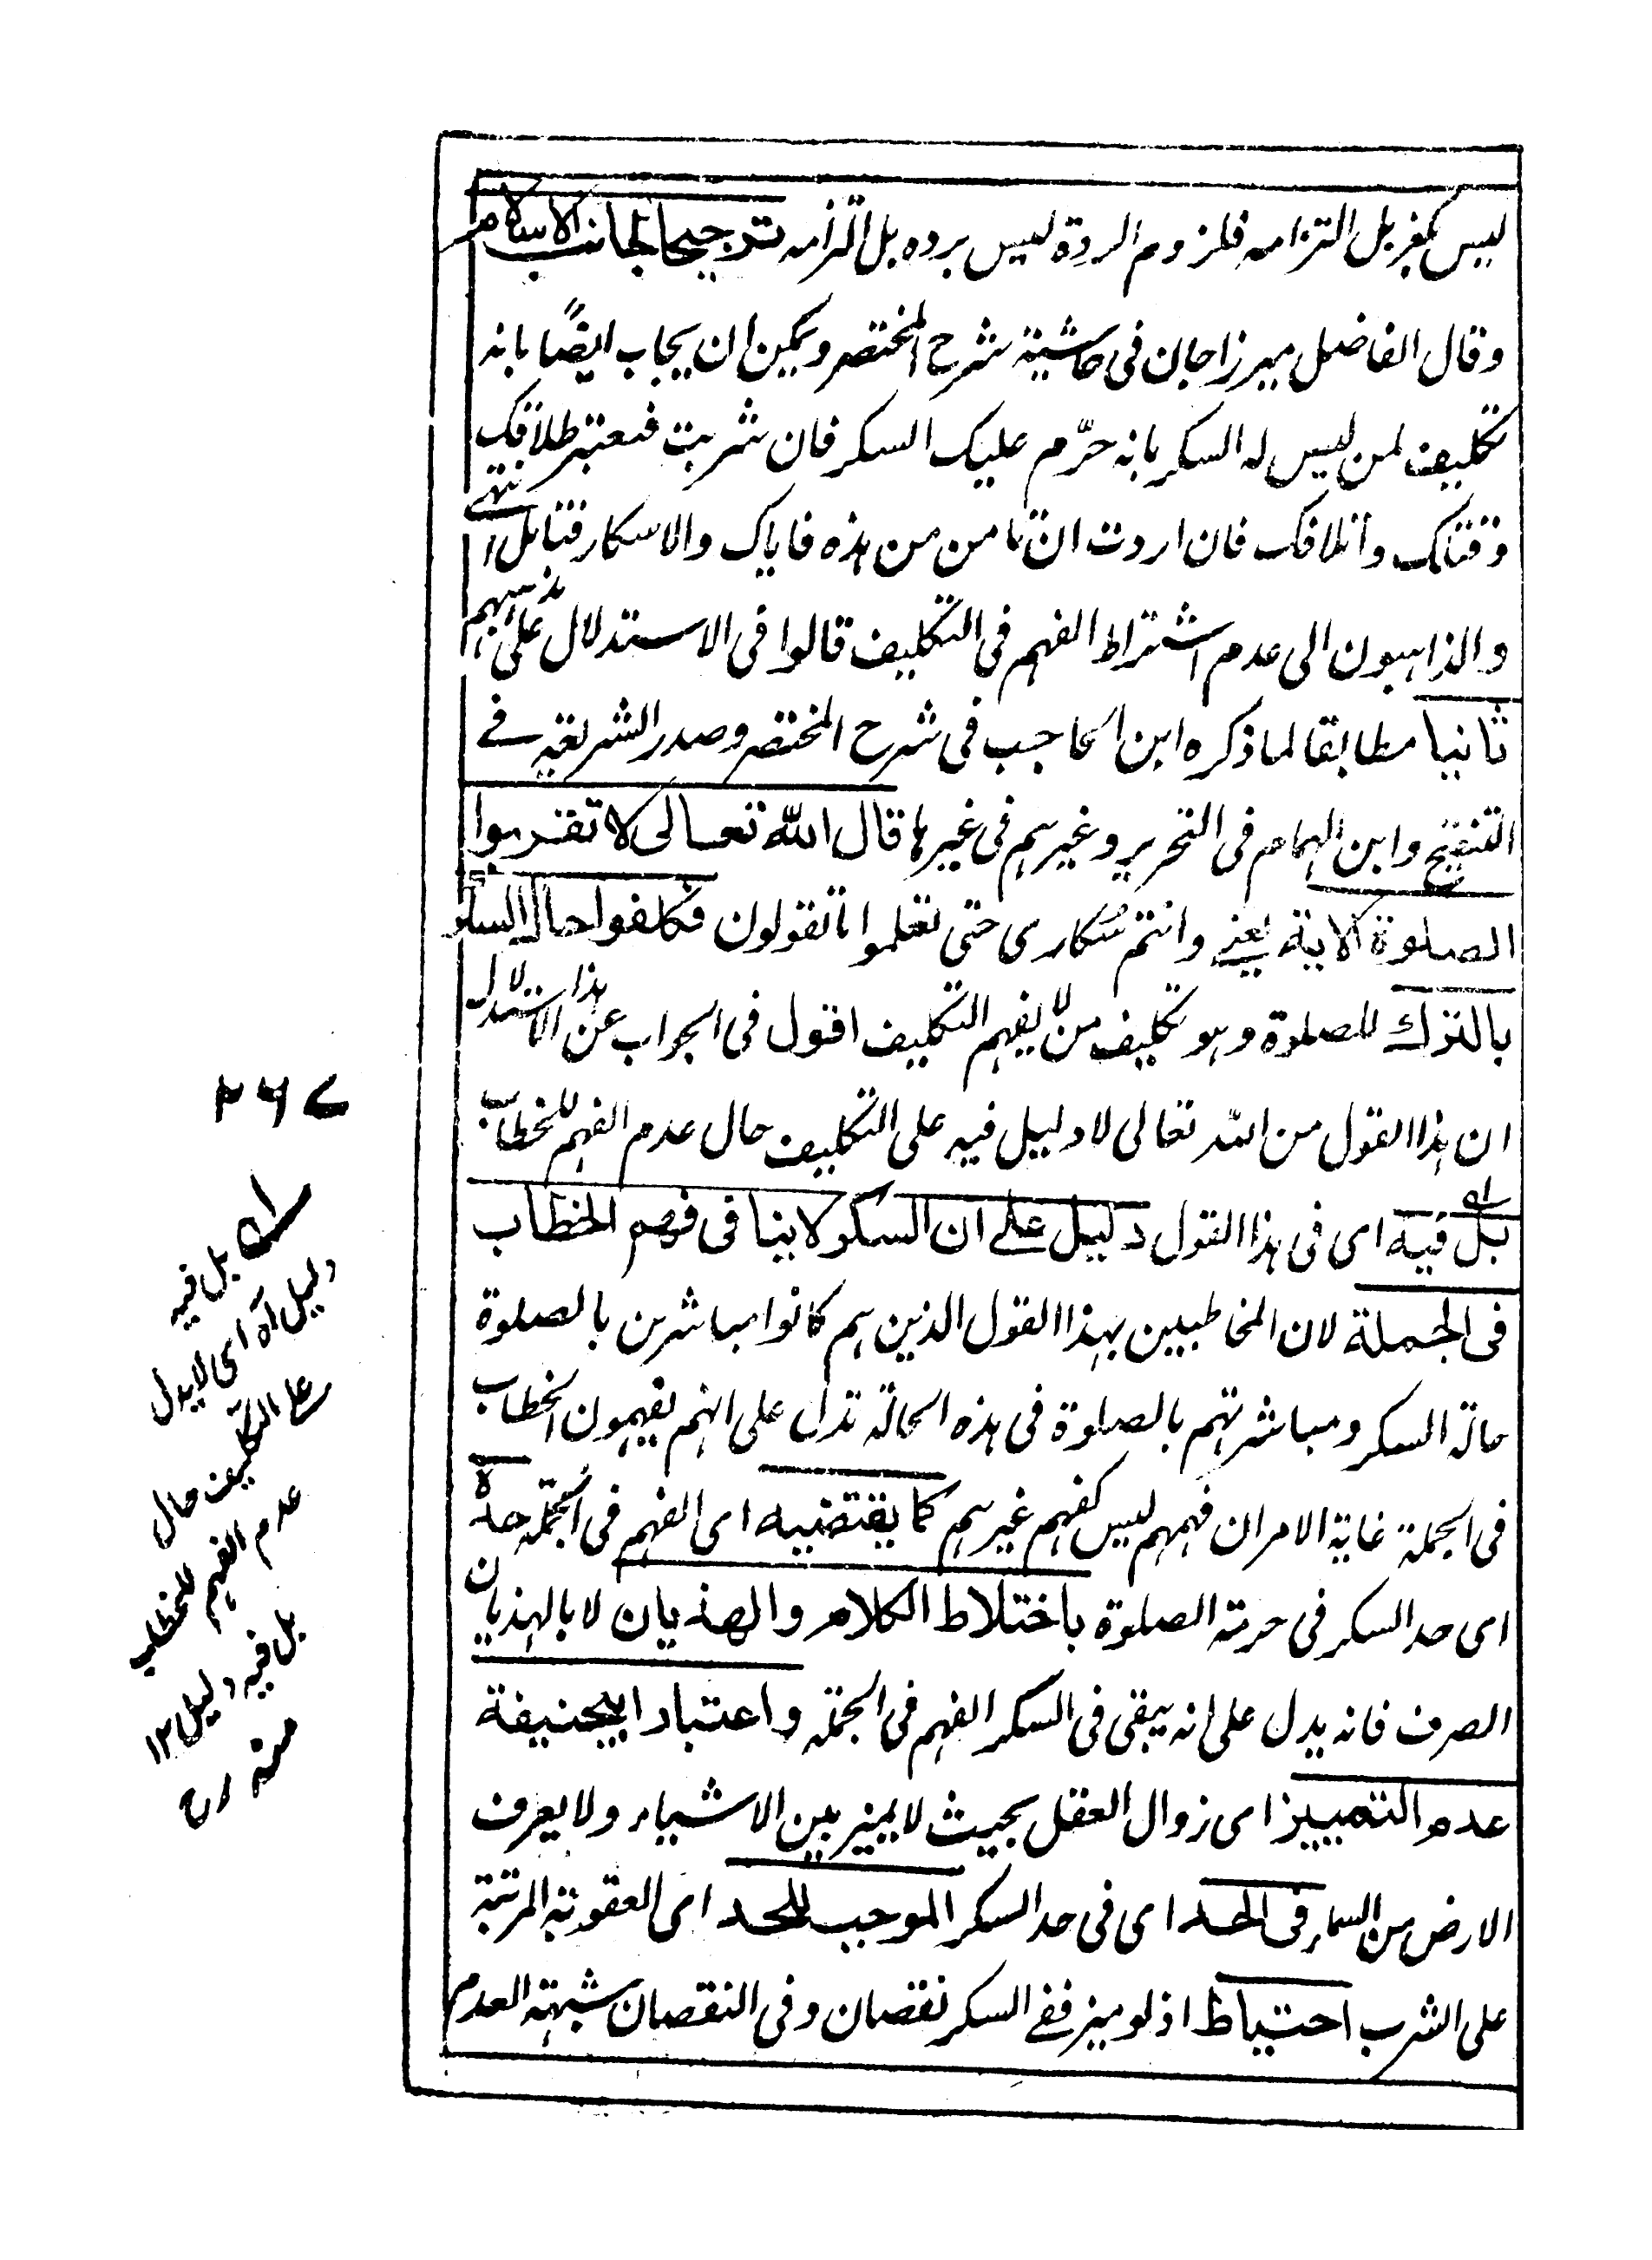 ليس بكفر بل التزامه فلزوم الردة ليس برده بل التزامه ترجيحا لجانب الاسلام
وقال الفاضل ميرزا جان فى حاشية شرح المختصر ويمكن ان يجاب ايضًا بانه
تكليف لمن ليس له السكر بانه حرّم عليك السكر فان شربت فنعتبر طلاقك
وقتلك واتلافك فان اردت ان تامن من هذه فاياك والاسكار فتامل انتهى
والذاهبون الى عدم اشتراط الفهم فى التكليف قالوا فى الاستدلال على مذهبهم
ثانيا مطابقا لما ذكره ابن الحاجب فى شرح المختصر وصدر الشريعة فے
التنقيح وابن الهمام فى التحرير وغيرهم فى غيرها قال الله تعالى لا تقربوا
الصلوة الاية يعنى وانتم سُكارى حتى تعلموا ما تقولون فكلفوا حالة السكر
بالترك للصلوة وهو تكليف من لا يفهم التكليف اقول فى الجواب عن هذا الاستدلال
ان هذا القول من الله تعالى لا دليل فيه على التكليف حال عدم الفهم للخطاب
بل فيه اى فى هذا القول دليل علے ان السكر لا ينافى فهم الخطاب
فى الجملة لان المخاطبين بهذا القول الذين هم كانوا مباشرين بالصلوة
حالة السكر ومباشرتهم بالصلوة فى هذه الحالة تدل على انهم يفهمون الخطاب
فى الجملة غاية الامر ان فهمهم ليس كفهم غيرهم كما يقتضيه اى الفهم فى الجملة حده
اى حد السكر فى حرمة الصلوة باختلاط الكلام والهذيان لا بالهذيان
الصرف فانه يدل على انه يبقى فى السكر الفهم فى الجملة واعتبار ابيحنيفة
عدم التمييز اى زوال العقل بحيث لا يميز بين الاشياء ولا يعرف
الارض من السماء فى الحد اى فى حد السكر الموجب للحد اى العقوبة المرتبة
على الشرب احتياط اذ لو ميز ففے السكر نقصان وفى النقصان شبهة العدم
۲۶۷
بل فيه
دليل آه اى لا يدل
على التكليف حال
عدم الفهم للخطاب
بل فيه دليل ١٢
منه رح